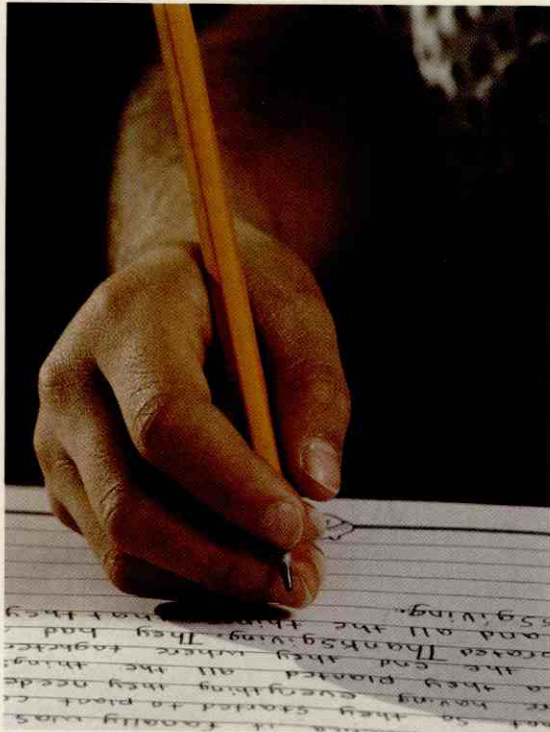 it fanally was
not so they started to plant
having everything they neede
they planted all the thing
the end they where togheter
orated Thanksgiving. They had
and all the thing that they
ssgiving.